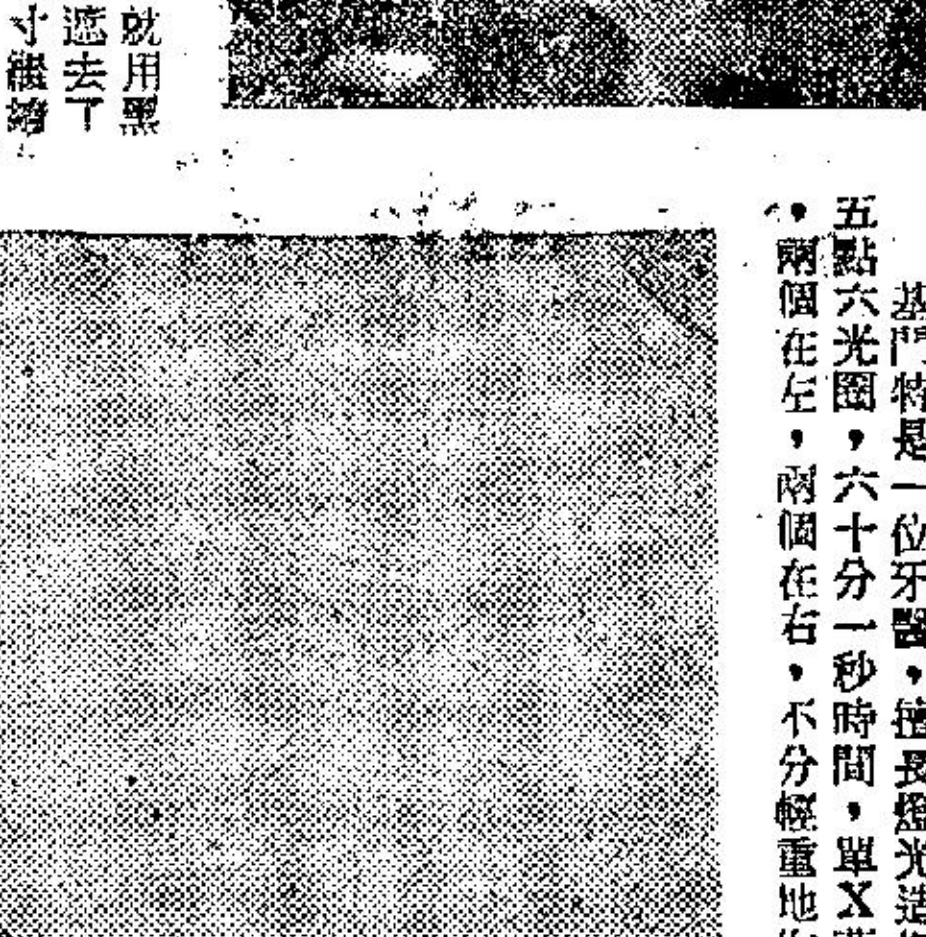 基門特是一位牙醫，擅長燈光造
五點六光圈，六十分一秒時間，單X
，兩個在左，兩個在右，不分輕重地
就用黑
遮去了
寸繼續